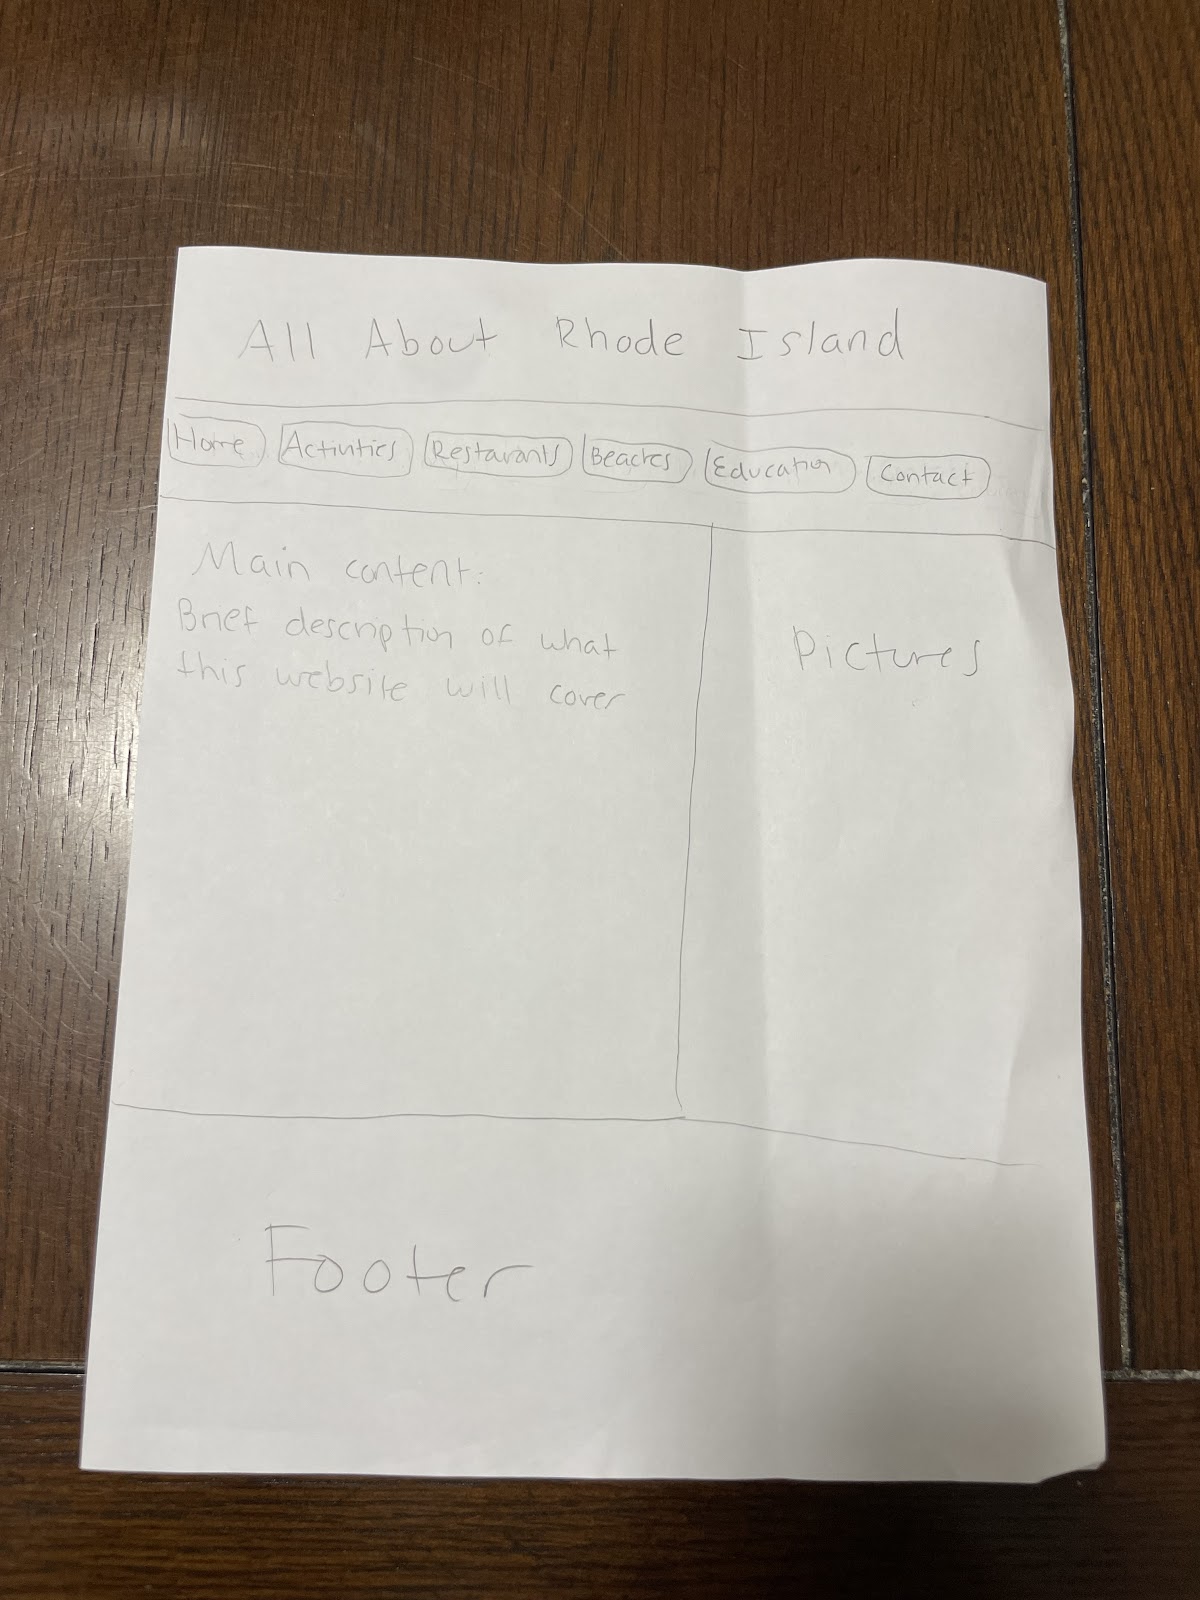 All About Rhode Island
Home Activities Restarants Beaches Education Contact
Main content:
Brief description of what
this website will cover
Pictures
Footer